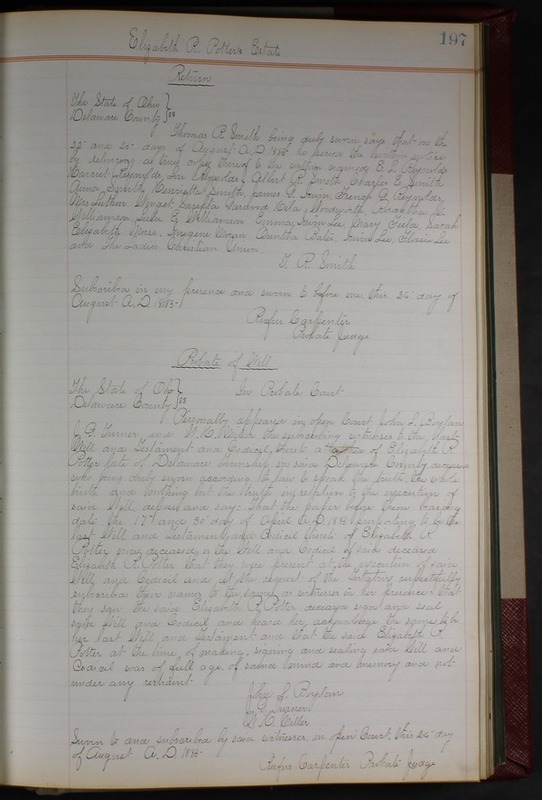 197
Elizabeth R. Potters Estate
Return
The State of Ohio }
Delaware County } ss
Thomas R. Smith being duly sworn says that on the
22 and 25 days of August A.D. 1883 he served the within notice
by delivering a true copy thereof to the within named E. L. Reynolds
Harriet Reynolds, Reynolds, Albert R. Smith Charles E. Smith
Anna Smith, Henrietta Smith, James G. French G. Reynolds,
Mrs Luther Wila Woodworth,
Williamson E. Williamson Emma Lee, Mary Sarah
Elizabeth Morse, Imogene Lee, Lee
and The Ladies Christian Union
T. R. Smith
Subscribed in my presence and sworn to before me this 25 day of
August A.D. 1883-
Rufus Carpenter
Probate Judge
Probate of Will
The State of Ohio }
Delaware County } ss In Probate Court
Personally appeared in open Court John L. Boylan
J. G. Turner and the subscribing witnesses to the Last
Will and Testament and Codicil thereto of Elizabeth R.
Potter late of Delaware township in said Delaware County deceased
who being duly sworn according to law to speak the truth the whole
truth and nothing but the truth in relation to the execution of
said Will, depose and say: That the paper before them bearing
date the 17" and 30" day of April A.D. 188 purporting to be the
last Will and Testament and Codicil thereto of Elizabeth R.
Potter now deceased is the Will and Codicil of said deceased
Elizabeth R. Potter that they were present at the execution of said
Will and Codicil and at the request of the testatrix respectfully
subscribed their names to the same as witnesses in her presence that
they saw the said Elizabeth R. Potter deceased sign and seal
said Will and Codicil and heard her acknowledge the same to be
her last Will and Testament and that the said Elizabeth R.
Potter at the time of making, signing and sealing said Will and
Codicil was of full age of sound mind and memory and not
under any restraint.
John L. Boylan
J. G. Turner
Miller
Sworn to and subscribed by said witnesses in open Court this 25 day
of August A.D. 1883-
Rufus Carpenter Probate Judge